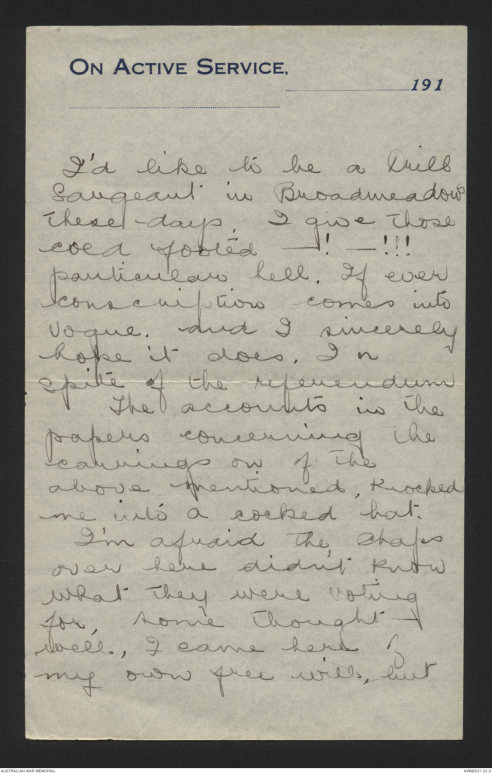 ON ACTIVE SERVICE,
191
I'd like to be a Drill
Sargeant in Broadmeadows
these days, I give those
cold footed —! —!!!
particular hell. If ever
conscription comes into
vogue. and I sincerely
hope it does. In
spite of the referendum
The accounts in the
papers concerning the
carryings on of the
above mentioned, knocked
me into a cocked hat.
I'm afraid the chaps
over here didn't know
what they were voting
for, some thought
well, I came here of
my own free will, but
AUSTRALIAN WAR MEMORIAL